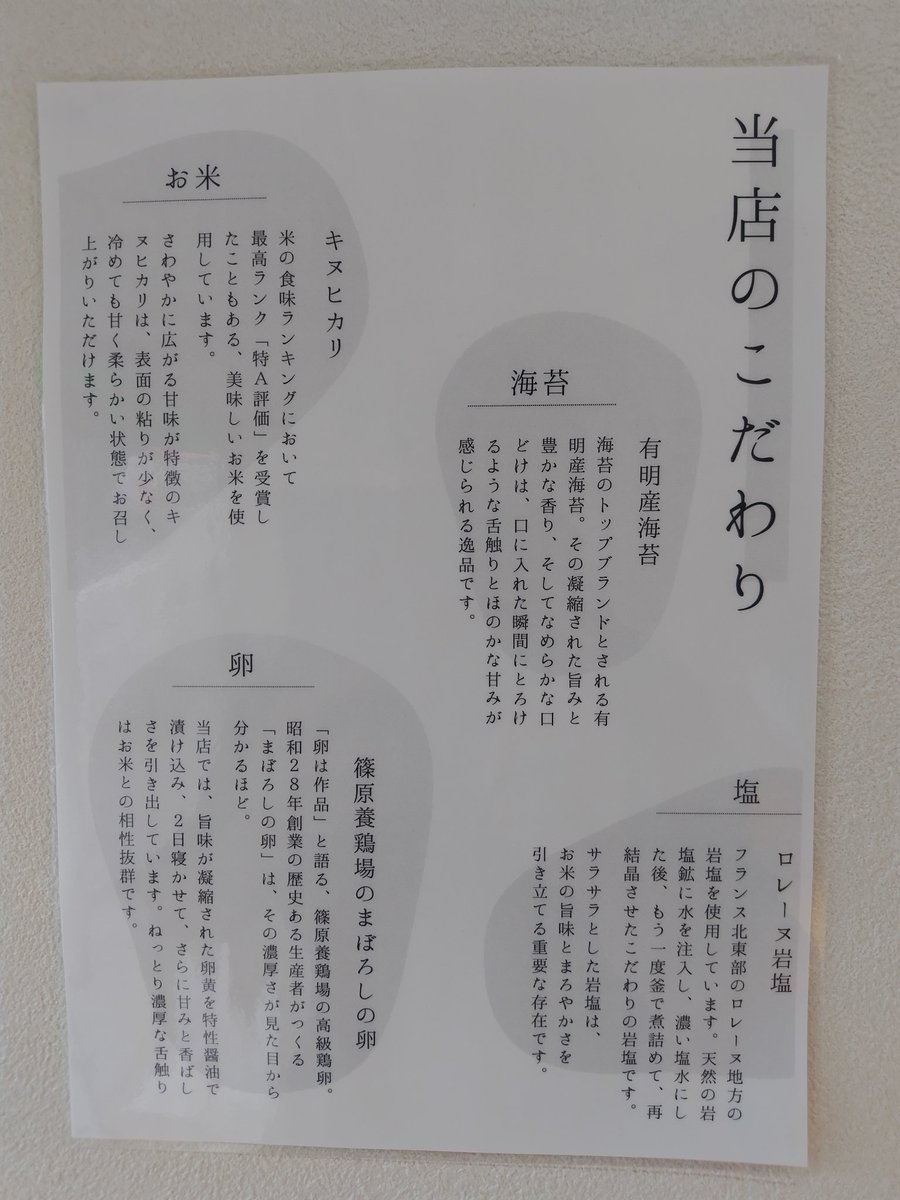 当店のこだわり
お米
キヌヒカリ
米の食味ランキングにおいて
最高ランク「特A評価」を受賞し
たこともある、美味しいお米を使
用しています。
さわやかに広がる甘味が特徴のキ
ヌヒカリは、表面の粘りが少なく、
冷めても甘く柔らかい状態でお召し
上がりいただけます。
海苔
有明産海苔
海苔のトップブランドとされる有
明産海苔。その凝縮された旨みと
豊かな香り、そしてなめらかな口
どけは、口に入れた瞬間にとろけ
るような舌触りとほのかな甘みが
感じられる逸品です。
卵
篠原養鶏場のまぼろしの卵
「卵は作品」と語る、篠原養鶏場の高級鶏卵。
昭和28年創業の歴史ある生産者がつくる
「まぼろしの卵」は、その濃厚さが見た目から
分かるほど。
当店では、旨味が凝縮された卵黄を特性醤油で
漬け込み、2日寝かせて、さらに甘みと香ばし
さを引き出しています。ねっとり濃厚な舌触り
はお米との相性抜群です。
塩
ロレーヌ岩塩
フランス北東部のロレーヌ地方の
岩塩を使用しています。天然の岩
塩鉱に水を注入し、濃い塩水にし
た後、もう一度釜で煮詰めて、再
結晶させたこだわりの岩塩です。
サラサラとした岩塩は、
お米の旨味とまろやかさを
引き立てる重要な存在です。